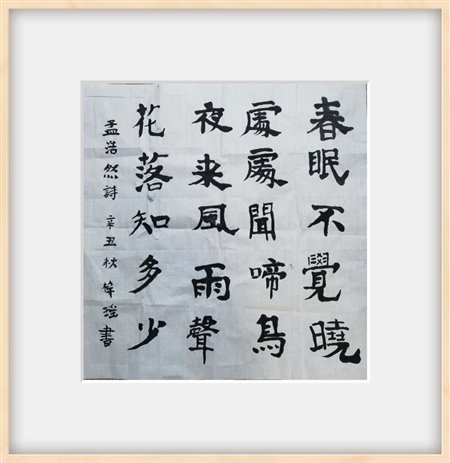 春眠不覺曉
處處聞啼鳥
夜来風雨聲
花落知多少
孟浩然詩 辛丑秋 書